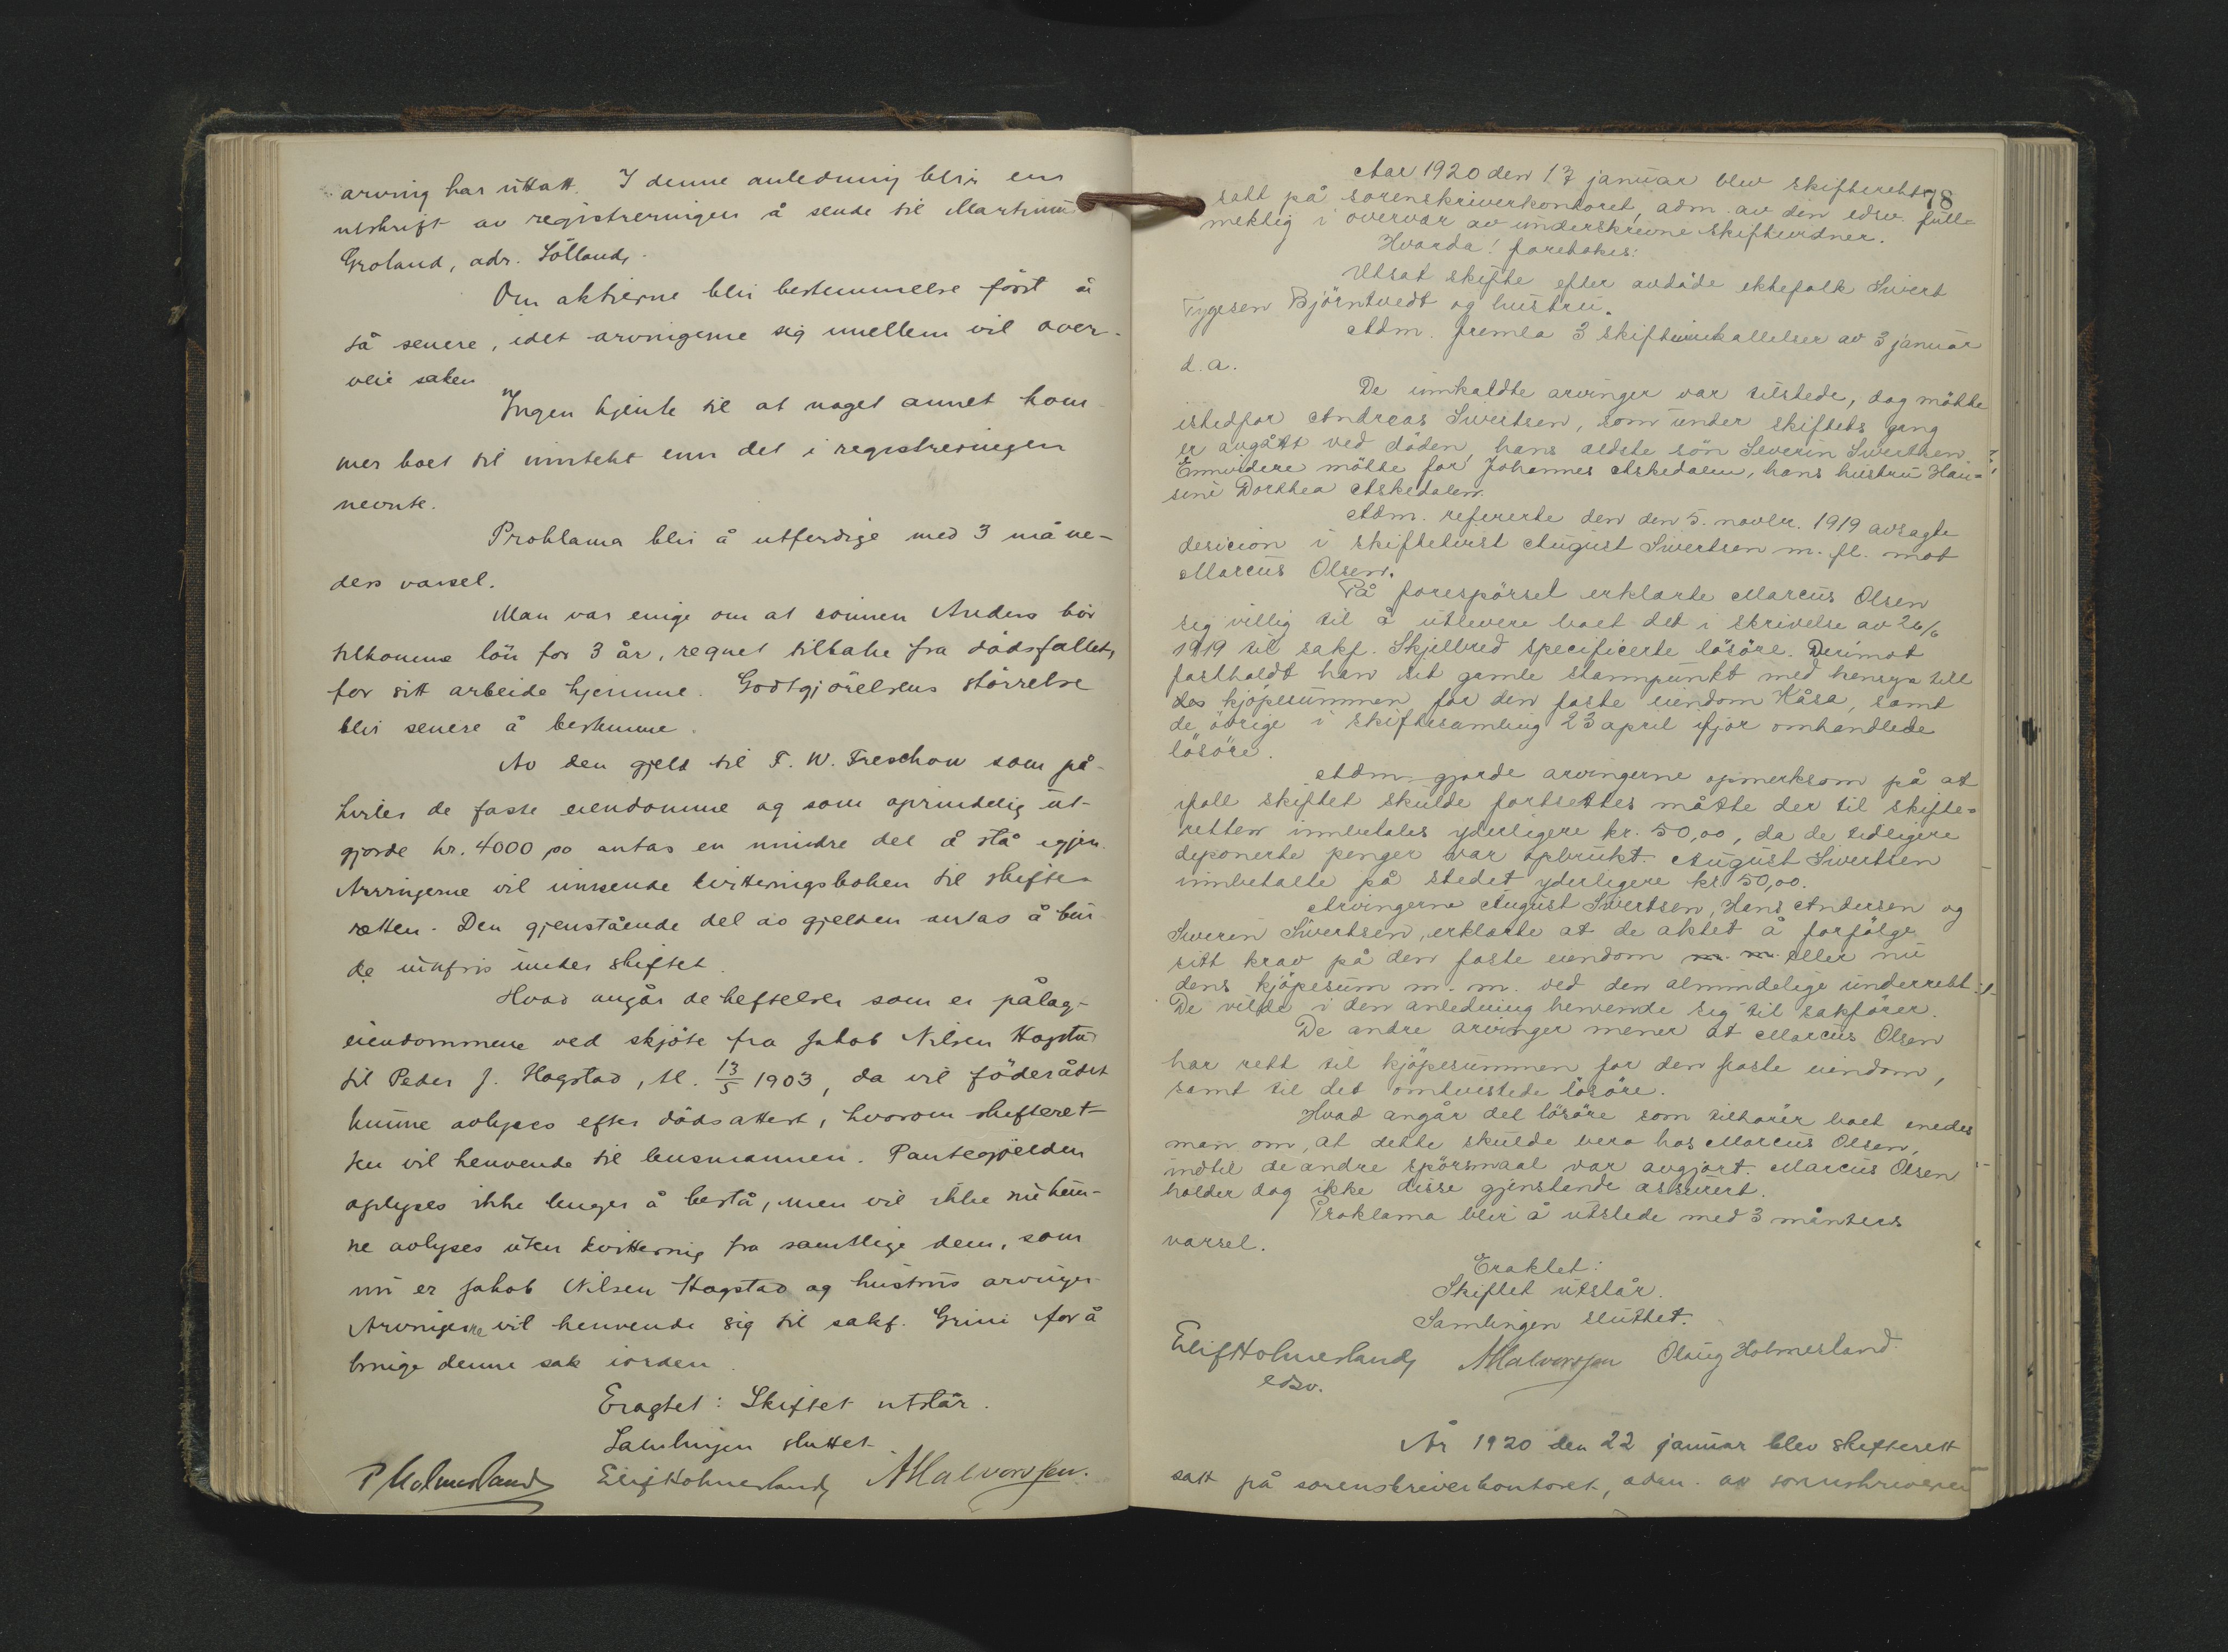 arving har uttatt. I denne anledning blir en
utskrift av registreringen å sende til Martinius
Groland, adr. Sölland,
Om aktierne blir bestemmelse först å
få senere, idet arvingerne sig imellem vil over-
veie saken
Ingen kjente til at noget annet kom-
mer boet til inntekt enn det i registreringen
nevnte.
Proklama blir å utferdige med 3 måne-
ders varsel.
Man var enige om at sönnen Anders bör
tilkomme lön for 3 år, regnet tilbake fra dödsfallet,
for sitt arbeide hjemme. Godtgjörelsens störrelse
blir senere å bestemme.
Av den gjeld til F. W. Treschow som på-
hviler de faste eiendomme og som oprindelig ut-
gjorde kr. 4000,00 antas en mindre del å stå igjen.
Arvingerne vil innsende kvitteringsboken til skifte-
retten. Den gjenstående del av gjelden antas å kun-
de innfris under skiftet.
Hvad angår de heftelser som er pålag-
eiendommene ved skjöte fra Jakob Nilsen Hogstad
til Peder J. Hogstad, tl. 13/5 1903, da vil föderådet
kunne avlyses efter dödsattest, hvorom skifteret-
ten vil henvende til lensmannen. Pantegjelden
oplyses ikke lenger å bestå, men vil ikke nu kun-
ne avlyses uten kvittering fra samtlige dem, som
nu er Jakob Nilsen Hogstad og hustrus arvinger.
Arvingerne vil henvende sig til sakf. Grini for å
bringe denne sak iorden.
Eragtet: Skiftet utstår.
Samlingen sluttet.
P Holmesland Eilif Holmesland, A Halvorsen.
78
Aar 1920 den 17 januar blev skifterett
satt på sorenskriverkontoret, adm. av den edsv. full-
mektig i overvær av underskrevne skiftevidner.
Hvorda! foretokes:
Utsat skifte efter avdöde ektefolk Sivert
Tygesen Björntvedt og hustru.
Adm. fremla 3 skifteinnkallelser av 3 januar
d.a.
De innkaldte arvinger var tilstede, dog mötte
istedfor Andreas Sivertsen, som under skiftets gang
er avgått ved döden, hans eldste sön Severin Sivertsen.
Ennvidere mötte for Johannes Askedalen, hans hustru Han-
sine Dorthea Askedalen.
Adm. refererte den den 5. novbr. 1919 avsagte
desicion i skiftetvist August Sivertsen m. fl. mot
Marcus Olsen.
På forespörsel erklærte Marcus Olsen
sig villig til å utlevere boet det i skrivelse av 26/6
1919 til sakf. Skjelbred specificerte lösöre. Derimot
fastholdt han sit gamle stannpunkt med hensyn till
des kjöpesummen for den faste eiendom Kåsa, samt
de övrige i skiftesamling 23 april ifjor omhandlede
lösöre.
Adm. gjorde arvingerne opmerksom på at
ifall skiftet skulde fortsettes måtte der til skifte-
retten innbetales yderligere kr. 50,00, da de tidligere
deponerte penger var opbrukt. August Sivertsen
innbetalte på stedet yderligere kr 50,00.
Arvingerne August Sivertsen, Hans Andersen og
Severin Sivertsen, erklærte at de aktet å forfölge
sitt krav på den faste eiendom m. m. eller nu
dens kjöpesum m. m. ved den almindelige underrett.
De vilde i den anledning henvende sig til sakförer.
De andre arvinger mener at Marcus Olsen
har rett til kjöpesummen for den faste eiendom,
samt til det omtvistede lösöre.
Hvad angår det lösöre som tilhörer boet enedes
man om, at dette skulde bero hos Marcus Olsen,
indtil de andre spörsmaal var avgjort. Marcus Olsen
holder dog ikke disse gjenstande assurert.
Proklama blir å utstede med 3 måneders
varsel.
Eraktet:
Skiftet utstår.
Samlingen sluttet.
Eilif Holmesland, A Halvorsen Olaug Holmesland.
edsv.
År 1920 den 22 januar blev skifterett
satt på sorenskriverkontoret, adm. av sorenskriveren